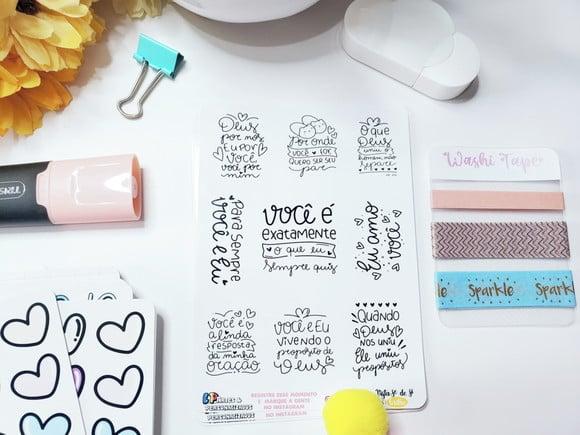 Deus
por nós
Eu por
você
você por
mim
Por onde
você for
quero ser seu
par
O que
Deus
uniu o
homem não
separe
Para sempre
você e eu
Você é
exatamente
o que eu
sempre quis
Eu amo
você
Você é
a linda
resposta
da minha
oração
Você e eu
vivendo o
propósito de
Deus
Quando
Deus
nos uniu
Ele uniu
propósitos
Artes &
Personalizados
REGISTRE ESSE MOMENTO
E MARQUE A GENTE
NO INSTAGRAM
Washi Tape
Sparkle Spark